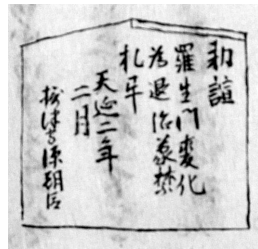 勅諚
羅生門変化
為退治蒙禁
札畢
天延二年
二月
摂津守源朝臣